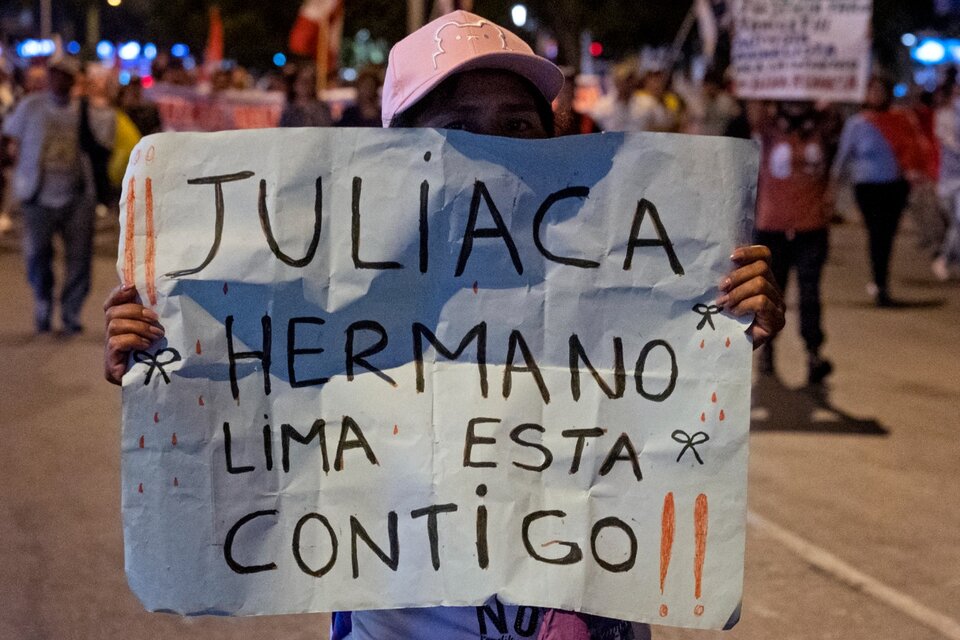 !! JULIACA
HERMANO
LIMA ESTA
CONTIGO !!
NO